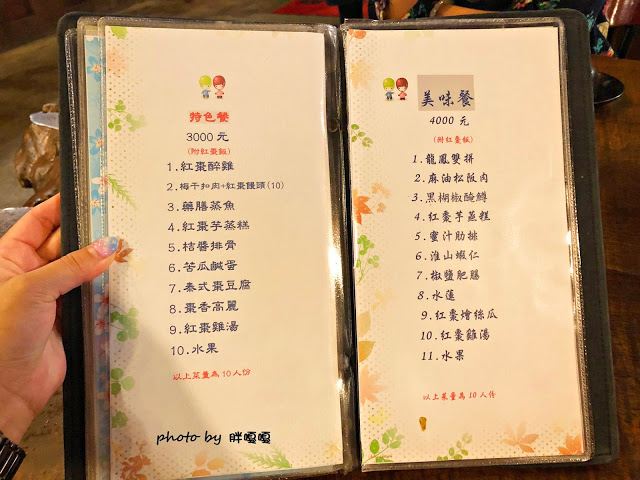 特色餐
3000元
(附紅棗飯)
1.紅棗醉雞
2.梅干扣肉+紅棗饅頭(10)
3.藥膳蒸魚
4.紅棗芋蒸糕
5.桔醬排骨
6.苦瓜鹹蛋
7.泰式棗豆腐
8.棗香高麗
9.紅棗雞湯
10.水果
以上菜量為10人份
photo by 胖嘎嘎
美味餐
4000元
(附紅棗飯)
1.龍鳳雙拼
2.麻油松阪肉
3.黑楜椒醃鱒
4.紅棗芋蒸糕
5.蜜汁肋排
6.淮山蝦仁
7.椒鹽肥腸
8.水蓮
9.紅棗燴絲瓜
10.紅棗雞湯
11.水果
以上菜量為10人份